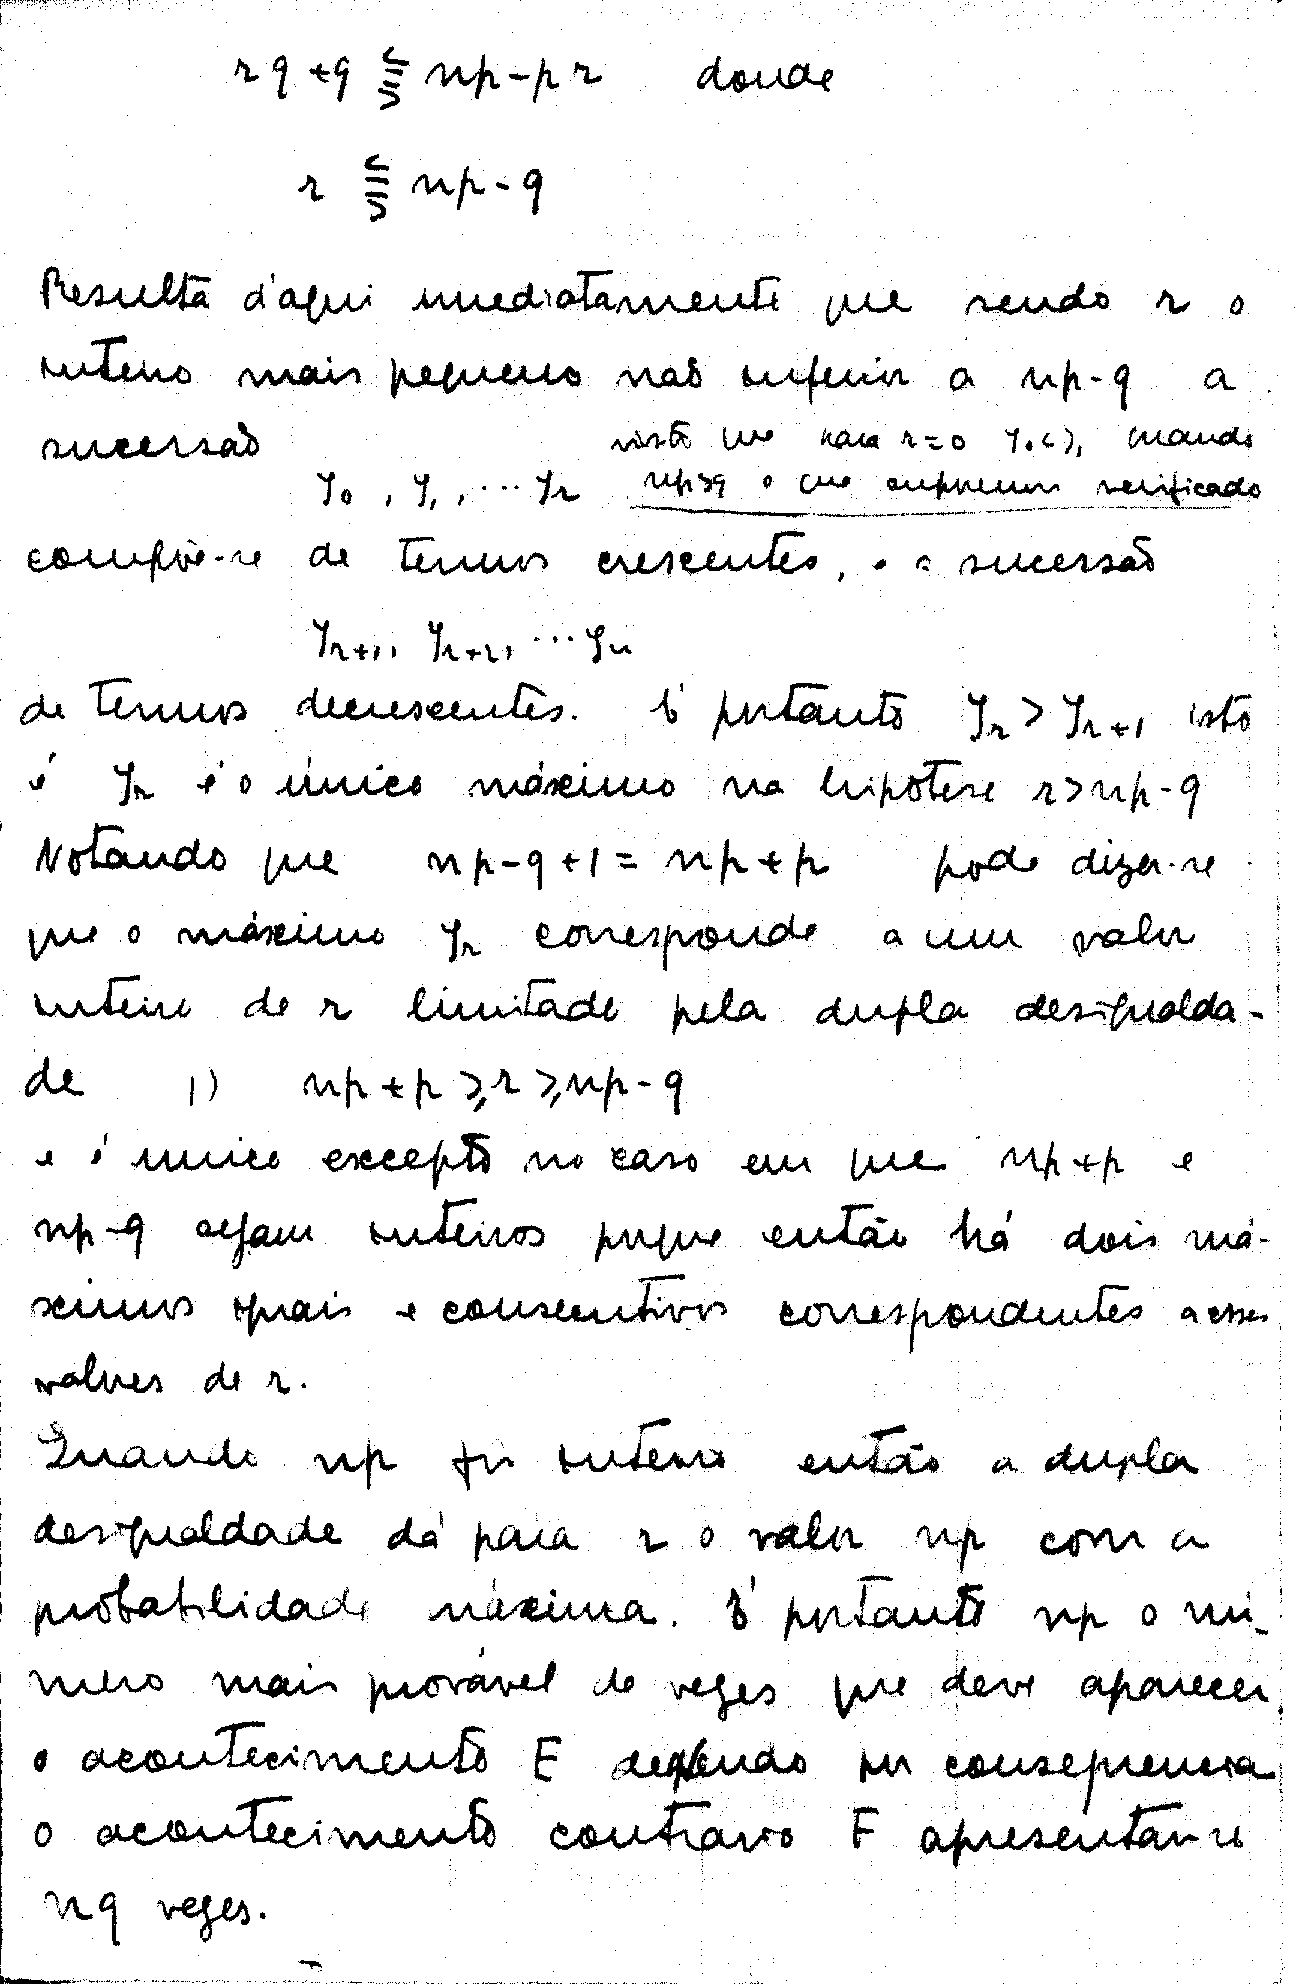 rq+q ⪋ np-pr donde
r ⪋ np-q
Resulta d'aqui imediatamente que sendo r o
inteiro mais pequeno não inferior a np-q a
sucessão
visto que para r=0 y₀<y₁, quando
np>q o que supomos verificado
y₀, y₁, ... yᵣ
compõe-se de termos crescentes, e a sucessão
yᵣ₊₁, yᵣ₊₂, ... yₙ
de termos decrescentes. É portanto yᵣ > yᵣ₊₁ isto
é yᵣ é o único máximo na hipótese r>np-q
Notando que np-q+1 = np+p pode dizer-se
que o máximo yᵣ corresponde a um valor
inteiro de r limitado pela dupla desigualda-
de 1) np+p ⩾ r ⩾ np-q
e é único excepto no caso em que np+p e
np-q sejam inteiros porque então há dois má-
ximos iguais e consecutivos correspondentes a esses
valores de r.
Quando np for inteiro então a dupla
desigualdade dá para r o valor np com a
probabilidade máxima. É portanto np o nú-
mero mais provável de vezes que deve aparecer
o acontecimento E devendo por consequencia
o acontecimento contrario F apresentar-se
nq vezes.